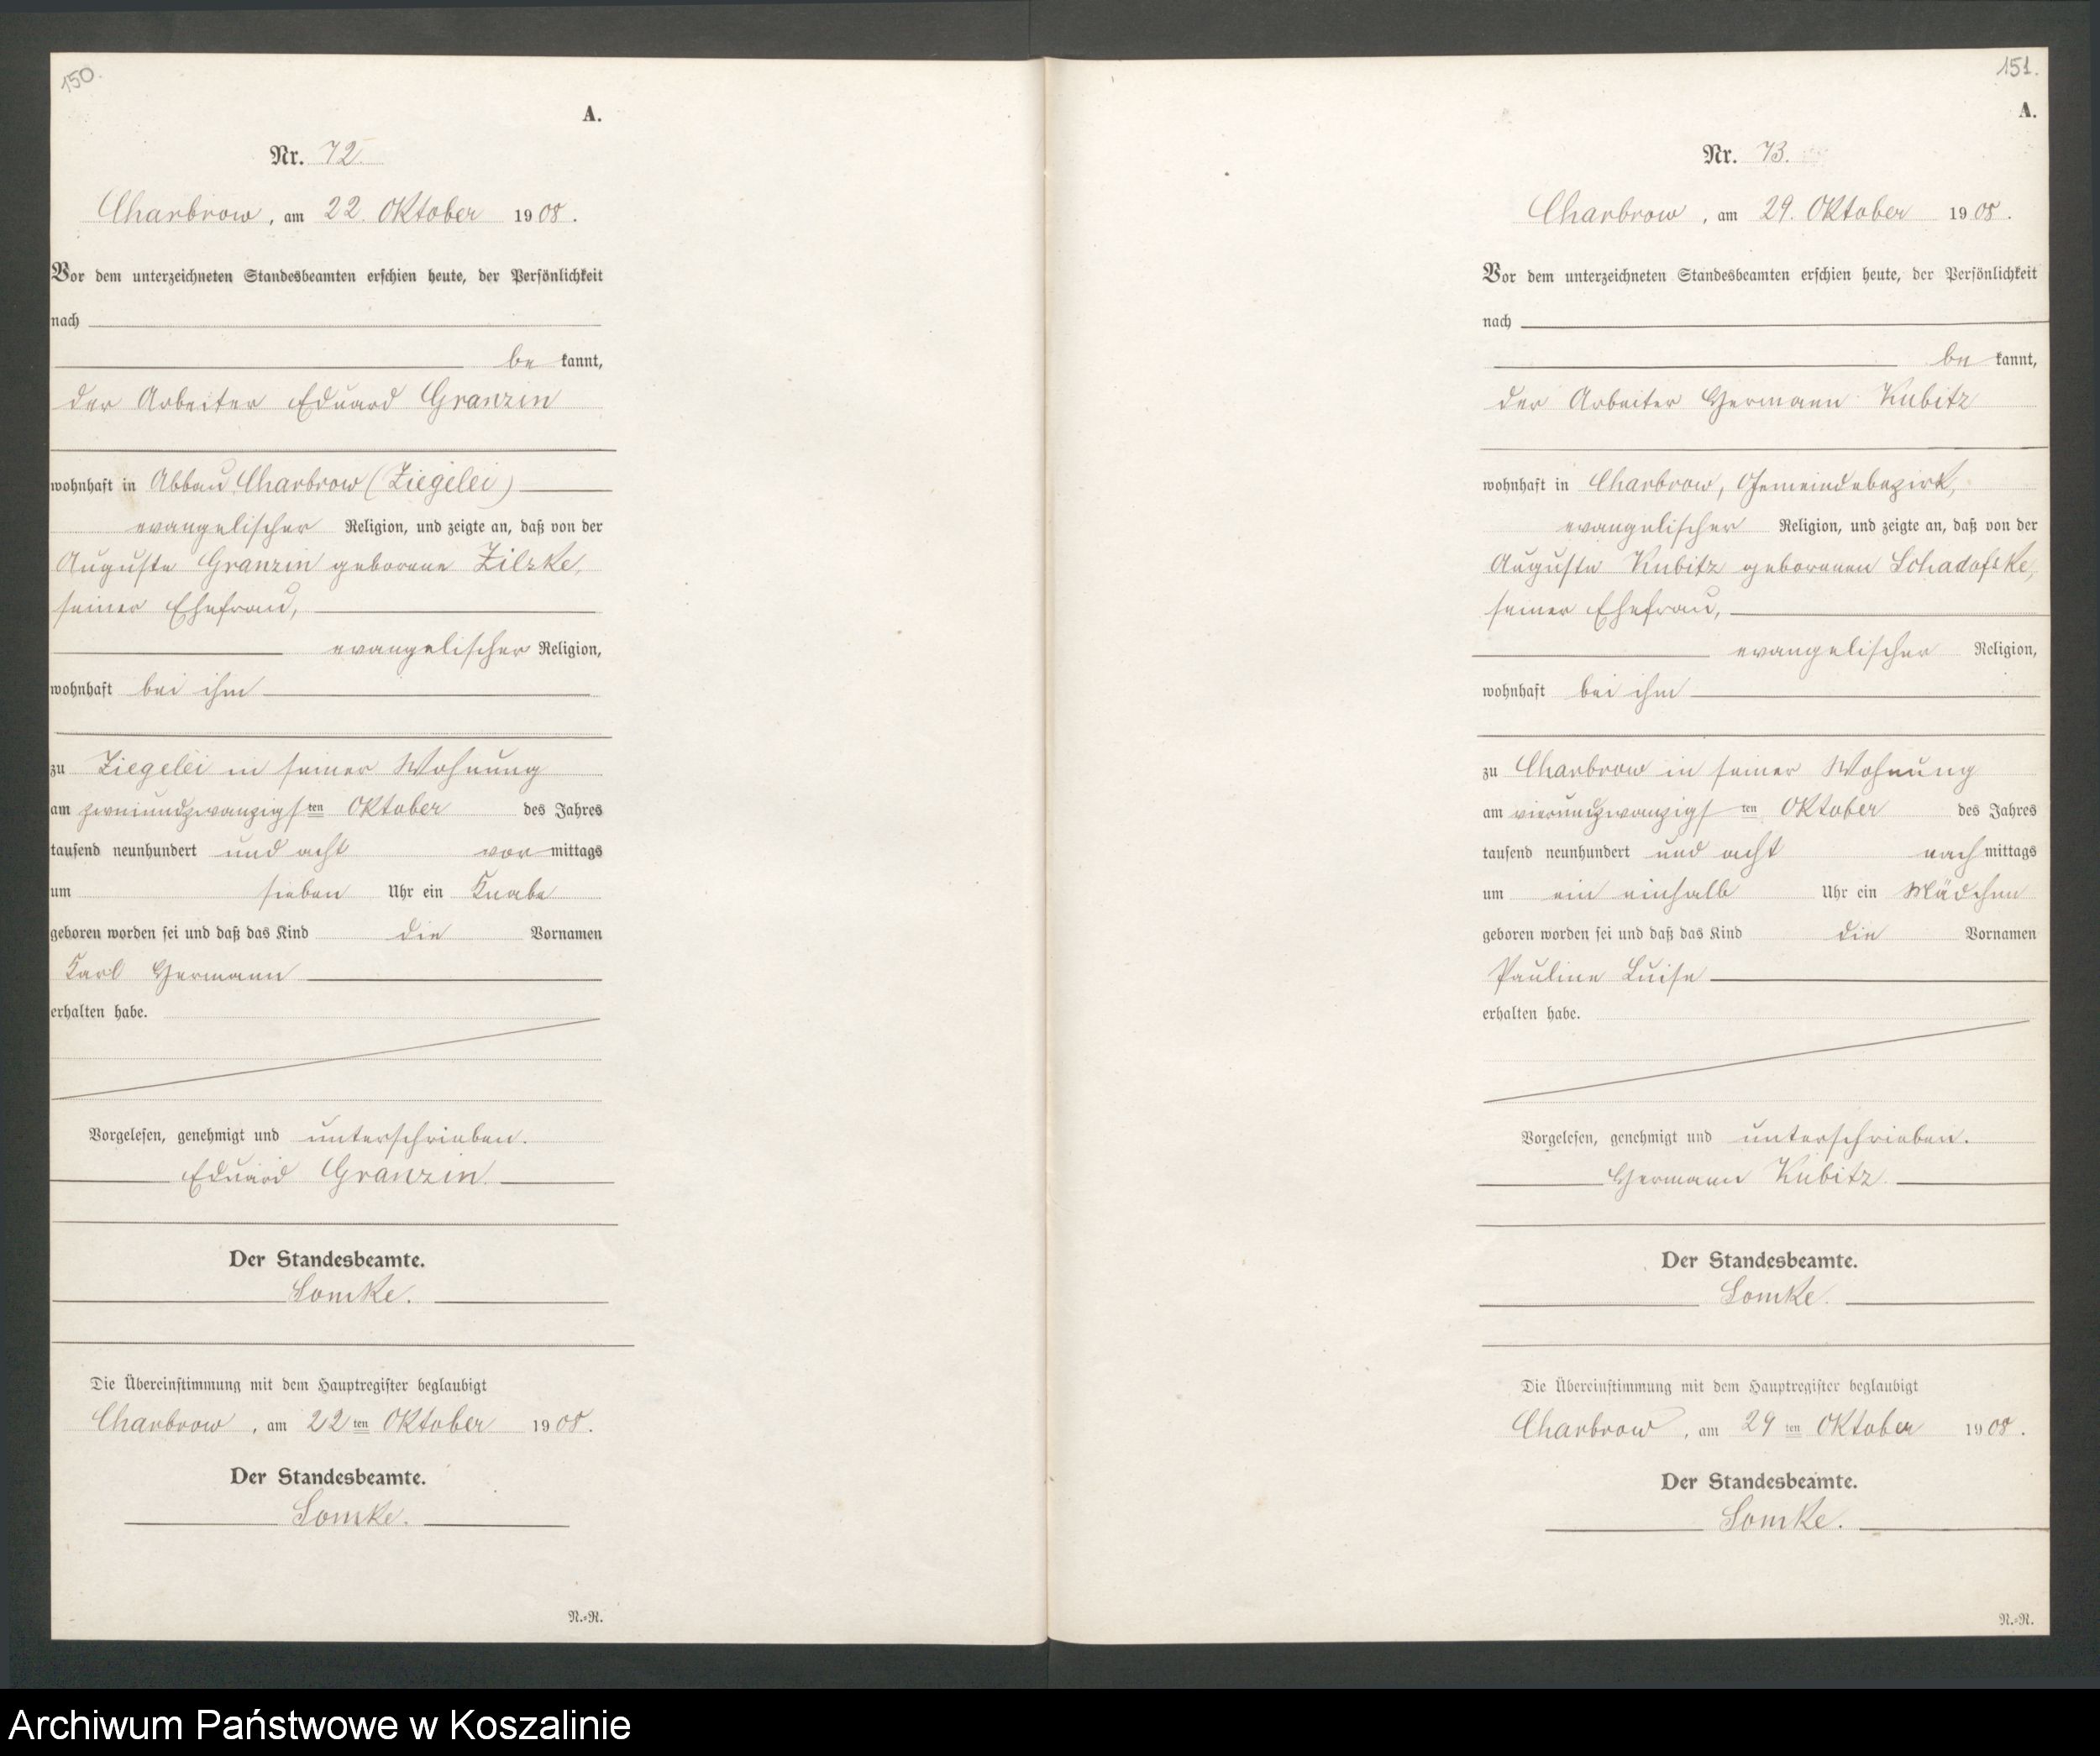 150.
A.
Nr. 72.
Charbrow, am 22. Oktober 1908.
Vor dem unterzeichneten Standesbeamten erschien heute, der Persönlichkeit
nach
be kannt,
der Arbeiter Eduard Granzin
wohnhaft in Abbau Charbrow (Ziegelei)
evangelischer Religion, und zeigte an, daß von der
Auguste Granzin geborene Zilske,
seiner Ehefrau,
evangelischer Religion,
wohnhaft bei ihm
zu Ziegelei in seiner Wohnung
am zweiundzwanzigsten Oktober des Jahres
tausend neunhundert und acht vor mittags
um sieben Uhr ein Knabe
geboren worden sei und daß das Kind die Vornamen
Karl Hermann
erhalten habe.
Vorgelesen, genehmigt und unterschrieben.
Eduard Granzin.
Der Standesbeamte.
Lomke.
Die Übereinstimmung mit dem Hauptregister beglaubigt
Charbrow, am 22ten Oktober 1908.
Der Standesbeamte.
Lomke.
N.=R.
151.
A.
Nr. 73.
Charbrow, am 29. Oktober 1908.
Vor dem unterzeichneten Standesbeamten erschien heute, der Persönlichkeit
nach
be kannt,
der Arbeiter Hermann Kubitz
wohnhaft in Charbrow, Gemeindebezirk,
evangelischer Religion, und zeigte an, daß von der
Auguste Kubitz geborenen Schadofske,
seiner Ehefrau,
evangelischer Religion,
wohnhaft bei ihm
zu Charbrow in seiner Wohnung
am vierundzwanzigsten Oktober des Jahres
tausend neunhundert und acht nach mittags
um ein einhalb Uhr ein Mädchen
geboren worden sei und daß das Kind die Vornamen
Pauline Luise
erhalten habe.
Vorgelesen, genehmigt und unterschrieben.
Hermann Kubitz.
Der Standesbeamte.
Lomke.
Die Übereinstimmung mit dem Hauptregister beglaubigt
Charbrow, am 29ten Oktober 1908.
Der Standesbeamte.
Lomke.
N.=R.
Archiwum Państwowe w Koszalinie